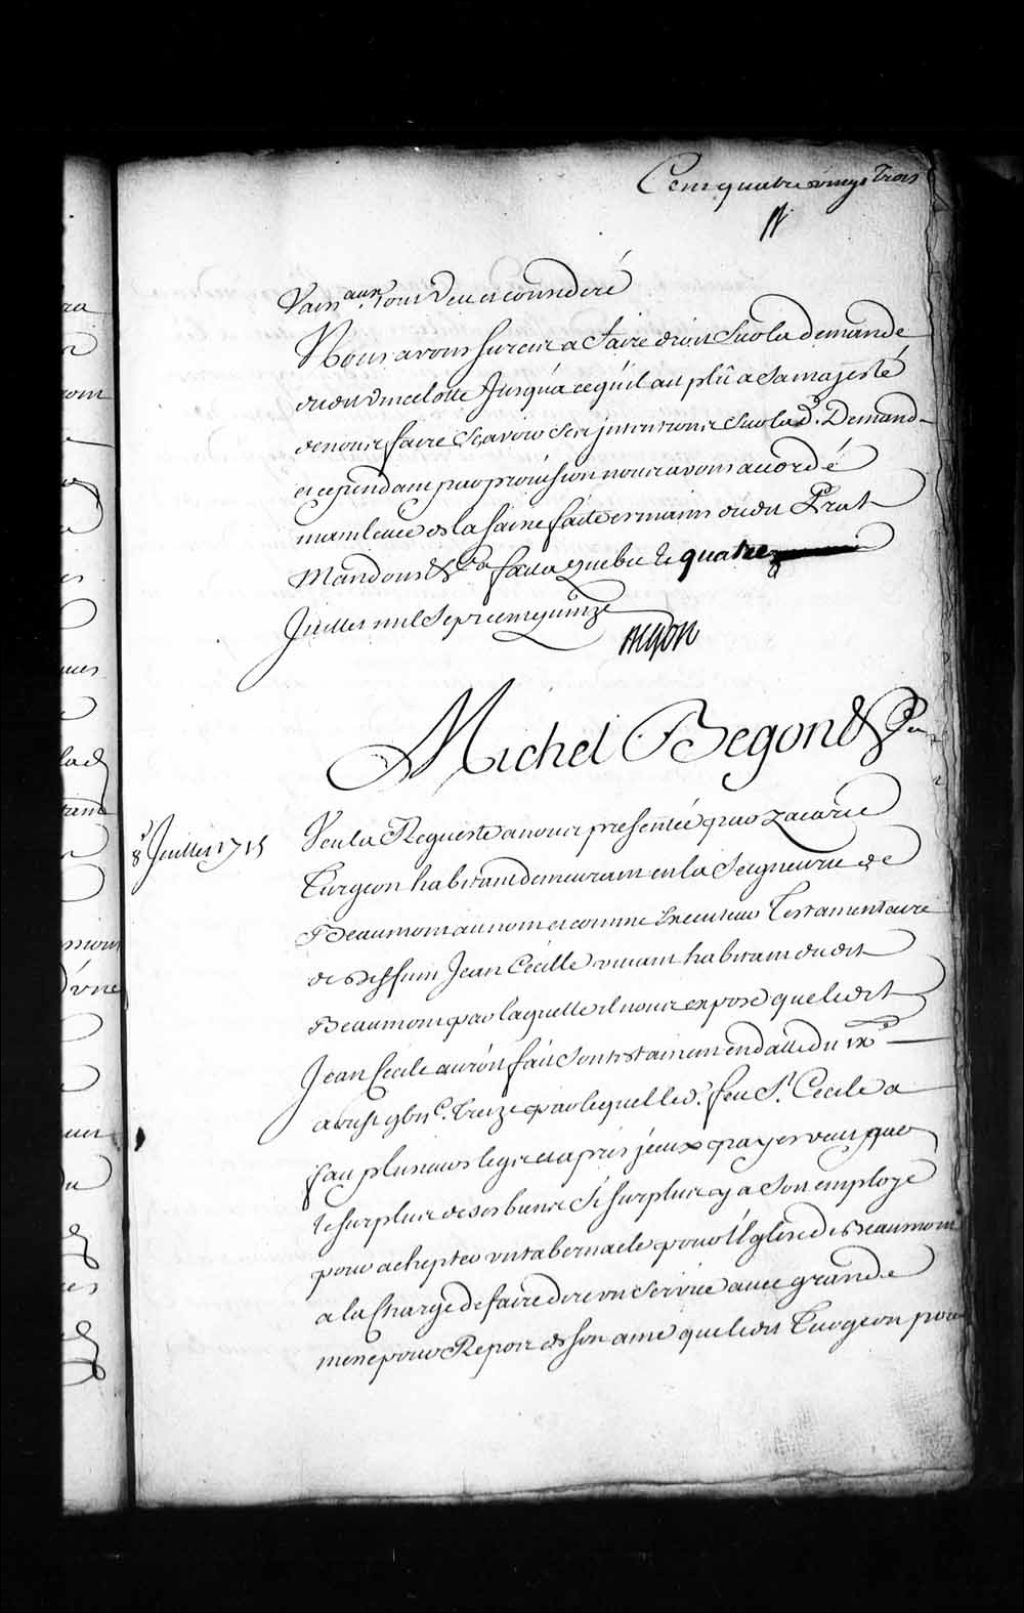 Cent quatre vingt Trois
Vain aux Tout Veu et consideré
Nous avons surcis a faire droit Sur la demande
dudit Vincelotte Jusqu'a ce qu'il ait plû a Sa majesté
de nous faire Scavoir Ses jntentions Sur lad. Demande
et cependant par provision nous avons accordé
mainlevée de la saisie faite es mains dudit Prat
Mandons &ca fait a quebec le quatre
Juillet mil Sept cent quinze
Begon
Michel Begon &ca
8 Juillet 1715
Veu la Requeste a nous presentée par Zacarie
Turgeon habitant demeurant en la Seigneurie de
Beaumont au nom et comme Executeur Testamentaire
de deffunt Jean Cecille vivant habitant dudit
Beaumont par laquelle il nous expose que ledit
Jean Cecile auroit fait Son testament en datte du
9bre. Treize par lequel led. feu Sr. Cecile a
fait plusieurs legs et apres jceux payes veut que
le surplus de ses biens Si surplus y a Soit employé
pour achepter un tabernacle pour l'Eglise de Beaumont
a la Charge de faire dire un Service avec grande
messe pour le Repos de son ame que ledit Turgeon pour